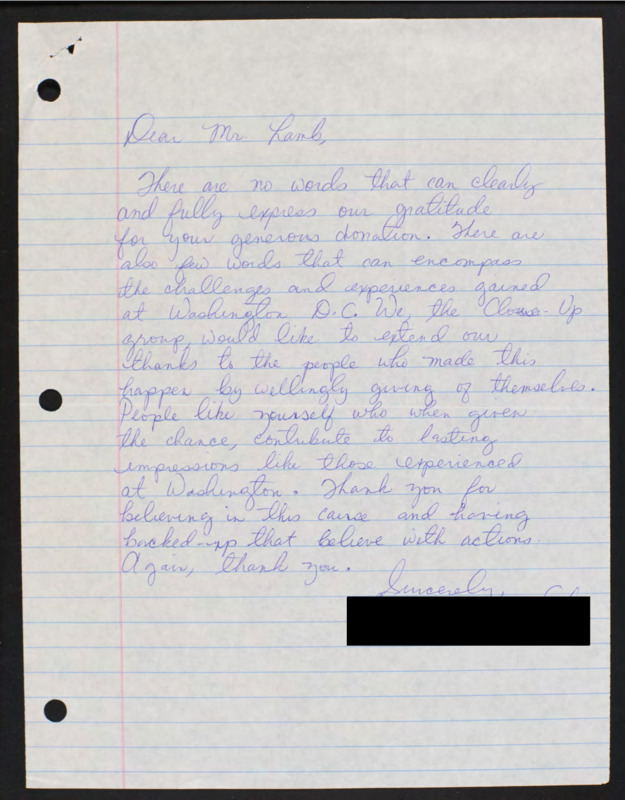 Dear Mr. Lamb,
There are no words that can clearly
and fully express our gratitude
for your generous donation. There are
also few words that can encompass
the challenges and experiences gained
at Washington D.C. We, the Close-Up
group, would like to extend our
thanks to the people who made this
happen by wellingly giving of themselves.
People like yourself who when given
the chance, contribute to lasting
impressions like those experienced
at Washington. Thank you for
believing in this cause and having
backed-up that believe with actions.
Again, thank you.
Sincerely,